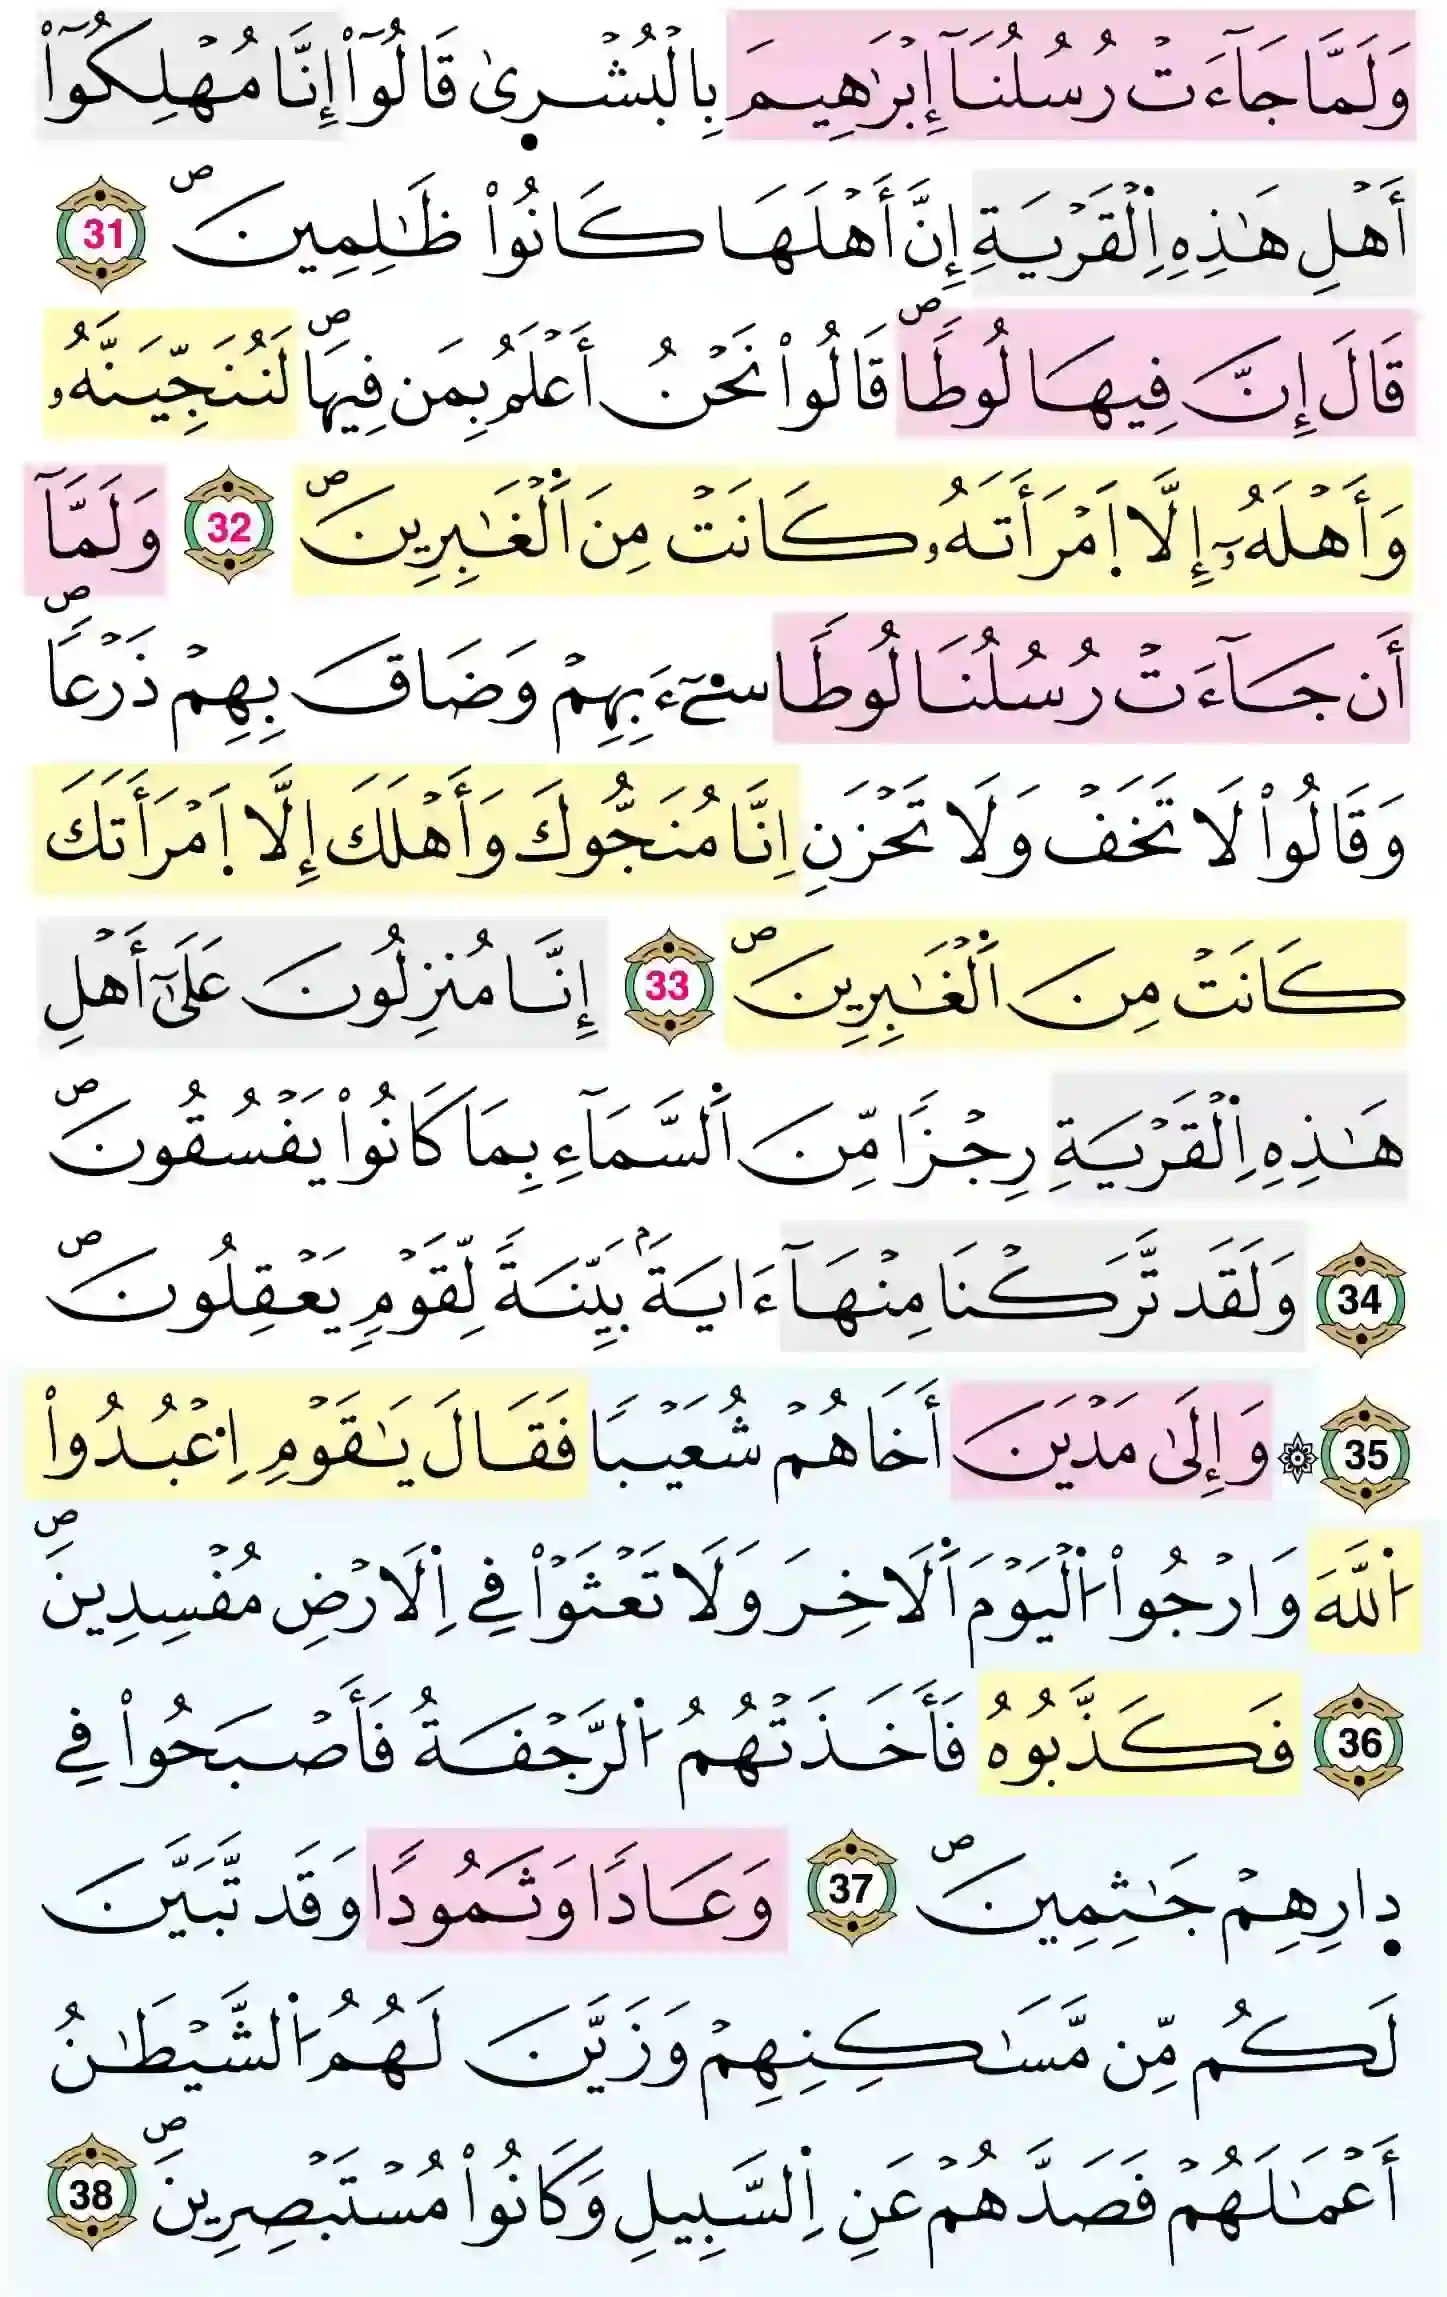 وَلَمَّا جَآءَتْ رُسُلُنَآ إِبْرَٰهِيمَ بِالْبُشْرِىٰ قَالُوٓاْ إِنَّا مُهْلِكُوٓاْ
أَهْلِ هَٰذِهِ اِ۬لْقَرْيَةِ إِنَّ أَهْلَهَا كَانُواْ ظَٰلِمِينَۖ 31
قَالَ إِنَّ فِيهَا لُوطاٗۖ قَالُواْ نَحْنُ أَعْلَمُ بِمَن فِيهَاۖ لَنُنَجِّيَنَّهُۥ
وَأَهْلَهُۥٓ إِلَّا اَ۪مْرَأَتَهُۥ كَانَتْ مِنَ اَ۬لْغَٰبِرِينَۖ 32 وَلَمَّآ
أَن جَآءَتْ رُسُلُنَا لُوطاٗ سِےٓءَ بِهِمْ وَضَاقَ بِهِمْ ذَرْعاٗۖ
وَقَالُواْ لَا تَخَفْ وَلَا تَحْزَنِ اِنَّا مُنَجُّوكَ وَأَهْلَكَ إِلَّا اَ۪مْرَأَتَكَ
كَانَتْ مِنَ اَ۬لْغَٰبِرِينَۖ 33 إِنَّا مُنزِلُونَ عَلَىٰٓ أَهْلِ
هَٰذِهِ اِ۬لْقَرْيَةِ رِجْزاٗ مِّنَ اَ۬لسَّمَآءِ بِمَا كَانُواْ يَفْسُقُونَۖ
34 وَلَقَد تَّرَكْنَا مِنْهَآ ءَايَةَۢ بَيِّنَةٗ لِّقَوْمٖ يَعْقِلُونَۖ
35 ۞ وَإِلَىٰ مَدْيَنَ أَخَاهُمْ شُعَيْباٗ فَقَالَ يَٰقَوْمِ اِ۟عْبُدُواْ
اُ۬للَّهَ وَارْجُواْ اُ۬لْيَوْمَ اَ۬لَاخِرَ وَلَا تَعْثَوْاْ فِي اِ۬لَارْضِ مُفْسِدِينَۖ
36 فَكَذَّبُوهُ فَأَخَذَتْهُمُ اُ۬لرَّجْفَةُ فَأَصْبَحُواْ فِي
دِارِهِمْ جَٰثِمِينَۖ 37 وَعَاداٗ وَثَمُوداٗ وَقَد تَّبَيَّنَ
لَكُم مِّن مَّسَٰكِنِهِمْ وَزَيَّنَ لَهُمُ اُ۬لشَّيْطَٰنُ
أَعْمَٰلَهُمْ فَصَدَّهُمْ عَنِ اِ۬لسَّبِيلِ وَكَانُواْ مُسْتَبْصِرِينَۖ 38